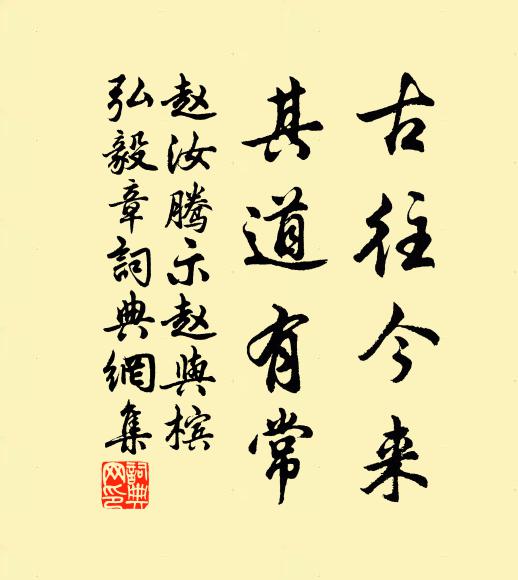 古往今来
其道有常
赵汝腾示赵与槟
弘毅章詞典網集
詞典网印